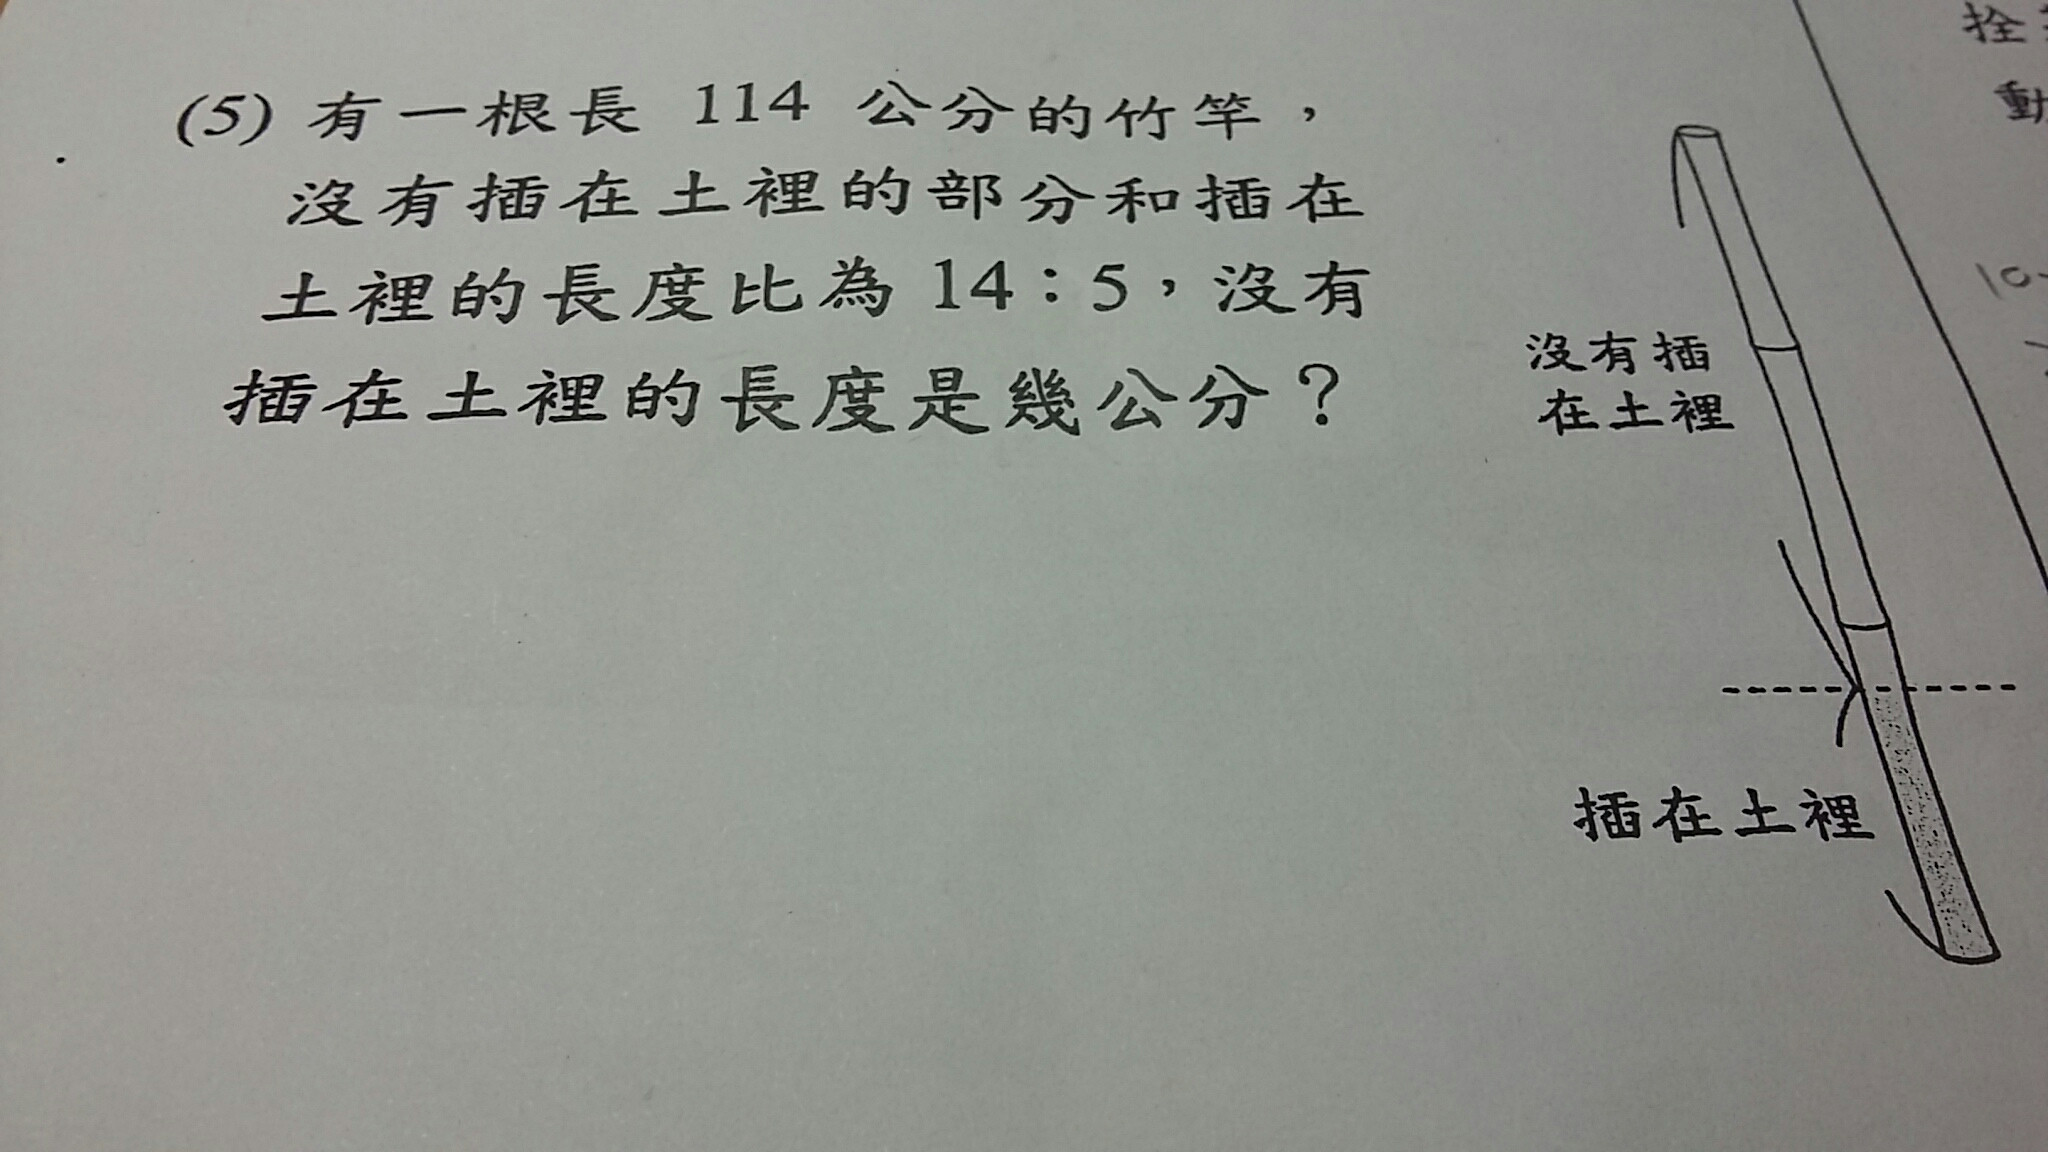 (5) 有一根長 114 公分的竹竿，
沒有插在土裡的部分和插在
土裡的長度比為 14：5，沒有
插在土裡的長度是幾公分？
沒有插
在土裡
插在土裡
拴
動
10